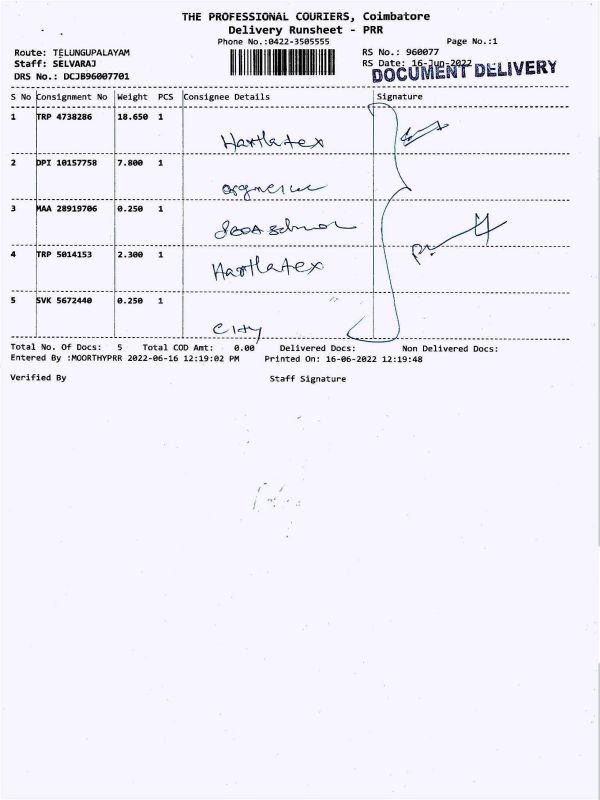 THE PROFESSIONAL COURIERS, Coimbatore
Delivery Runsheet - PRR
Phone No.:0422-3505555
Page No.:1
Route: TELUNGUPALAYAM
RS No.: 960077
Staff: SELVARAJ
RS Date: 16-Jun-2022
DRS No.: DCJB96007701
DOCUMENT DELIVERY
S No Consignment No Weight PCS Consignee Details Signature
1 TRP 4738286 18.650 1
Hartlatex
2 DPI 10157758 7.800 1
3 MAA 28919706 0.250 1
4 TRP 5014153 2.300 1
Hartlatex
5 SVK 5672440 0.250 1
City
Total No. Of Docs: 5 Total COD Amt: 0.00 Delivered Docs: Non Delivered Docs:
Entered By :MOORTHYPRR 2022-06-16 12:19:02 PM Printed On: 16-06-2022 12:19:48
Verified By Staff Signature